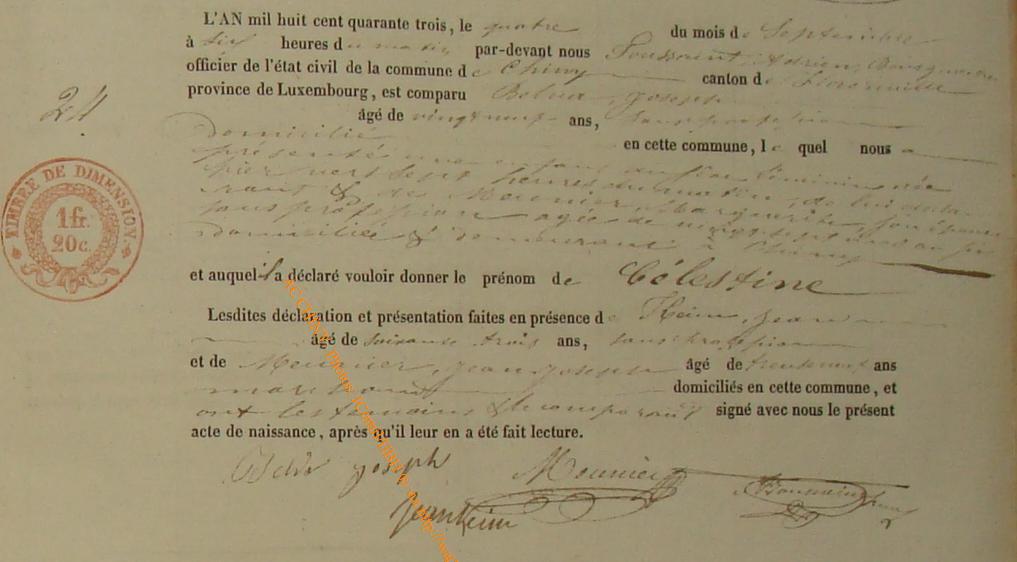 L'AN mil huit cent quarante trois, le quatre du mois de Septembre
à six heures du matin par-devant nous Toussaint, Adrien,
officier de l'état civil de la commune de Chiny canton de Florenville
province de Luxembourg, est comparu Joseph
âgé de vingt neuf ans, sans profession
domicilié en cette commune, le quel nous a
24
présenté une enfant du sexe féminin née
hier vers sept heures du matin, de lui décla-
rant & de Meunier, Marguerite, son épouse
sans profession agée de vingt sept ans aussi
domiciliée & demeurant à Chiny
TIMBRE DE DIMENSION
1 fr.
20 c.
et auquel il a déclaré vouloir donner le prénom de Célestine
Lesdites déclaration et présentation faites en présence de Keim, Jean
âgé de soixante trois ans, sans profession
et de Meunier, Jean Joseph âgé de trente neuf ans
marchand domiciliés en cette commune, et
ont les temoins & le comparant signé avec nous le présent
acte de naissance, après qu'il leur en a été fait lecture.
Joseph Meunier
Jean Keim